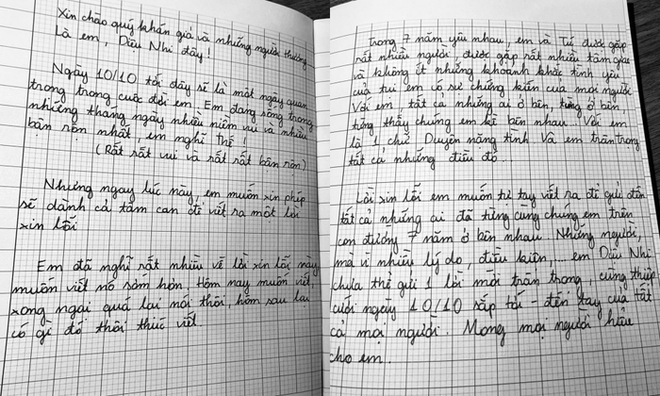 Xin chào quý khán giả và những người thương
Là em, Diệu Nhi đây!
Ngày 10/10 tới đây sẽ là một ngày quan
trọng trong cuộc đời em. Em đang sống trong
những tháng ngày nhiều niềm vui và nhiều
bận rộn nhất, em nghĩ thế!
(Rất rất vui và rất rất bận rộn)
Nhưng ngay lúc này, em muốn xin phép
sẽ dành cả tâm can để viết ra một lời
xin lỗi
Em đã nghĩ rất nhiều về lời xin lỗi này
muốn viết nó sớm hơn. Hôm nay muốn viết,
xong ngại quá lại nói thôi, hôm sau lại
có gì đó thôi thúc viết.
Trong 7 năm yêu nhau, em và Tú được gặp
rất nhiều người, được gặp rất nhiều tâm giao
và không ít những khoảnh khắc tình yêu
của tụi em có sự chứng kiến của mọi người
Với em, tất cả những ai ở bên, từng ở bên
từng thấy chúng em kề bên nhau. Với em
là 1 chữ Duyên nặng tình Và em trân trọng
tất cả những điều đó.
Lời xin lỗi em muốn tự tay viết ra để gửi đến
tất cả những ai đã từng cùng chúng em trên
con đường 7 năm ở bên nhau. Những người,
mà vì nhiều lý do, điều kiện,... em Diệu Nhi
chưa thể gửi 1 lời mời trân trọng, cùng thiệp
cưới ngày 10/10 sắp tới - đến tay của tất
cả mọi người. Mong mọi người hiểu
cho em.